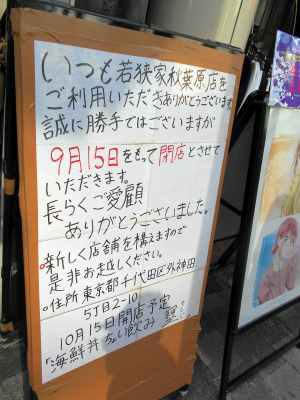 いつも若狭家秋葉原店を
ご利用いただきありがとうございます
誠に勝手ではございますが
9月15日をもって閉店とさせて
いただきます。
長らくご愛顧
ありがとうございました。
・新しく店舗を構えますので
是非お越しください。
・住所 東京都千代田区外神田
5丁目2-10
10月15日開店予定
「海鮮丼 ちょい飲み